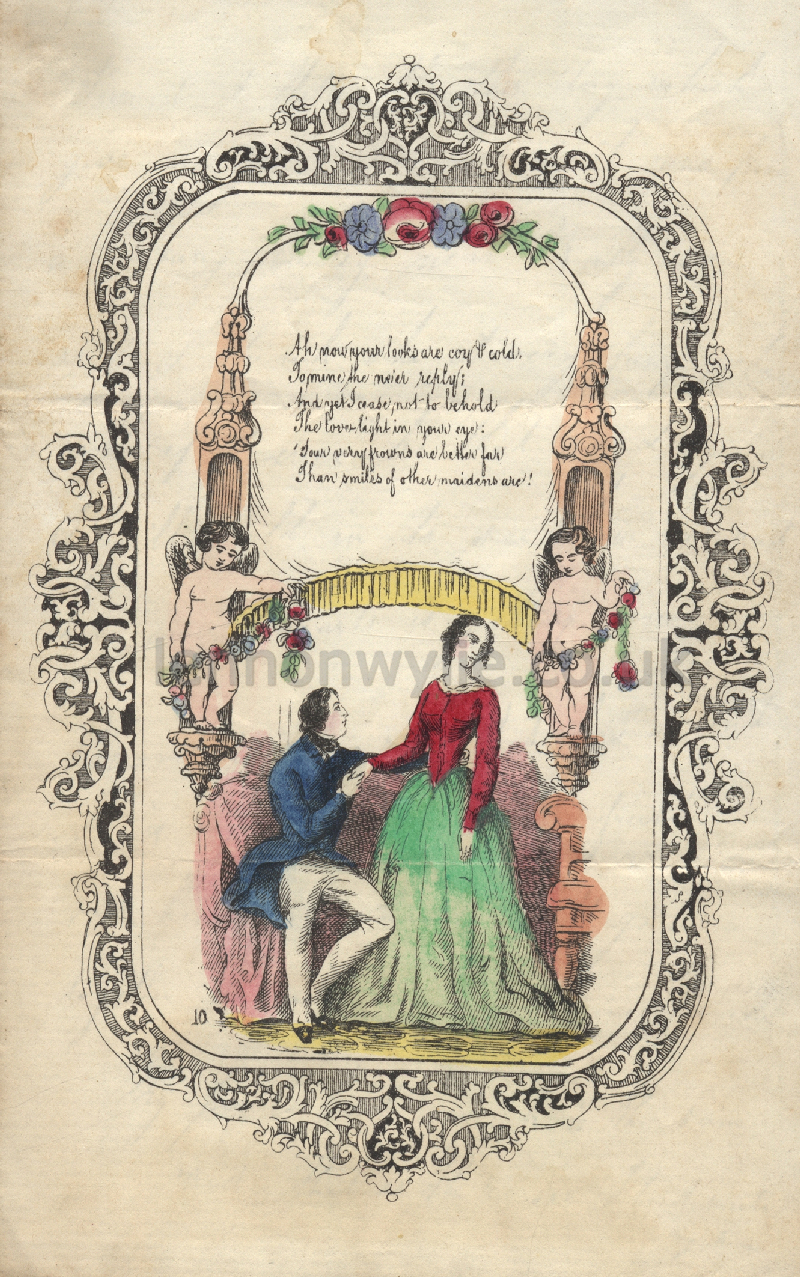 Ah now your looks are coy & cold,
To mine the ne'er reply;
And yet I cease not to behold
The love-light in your eye:
Your very frowns are better far
Than smiles of other maidens are!
lennonwylie.co.uk
10